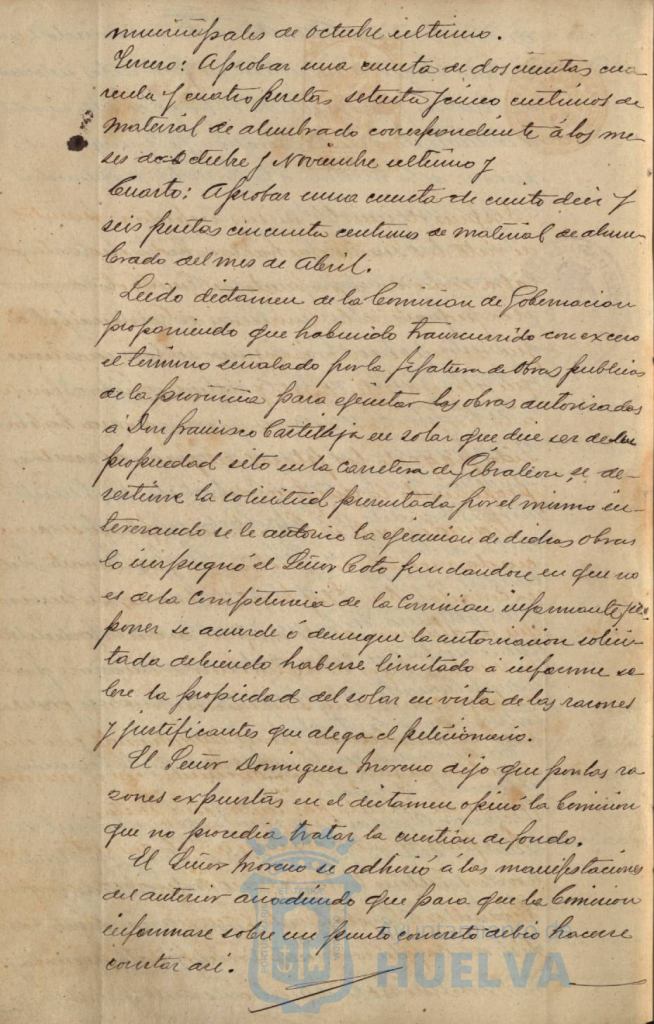 municipales de octubre ultimo.
Tercero: Aprobar una cuenta de doscientas cua
renta y cuatro pesetas setenta y cinco centimos de
material de alumbrado correspondiente á los me-
ses de Octubre y Noviembre ultimo y
Cuarto: Aprobar una cuenta de ciento diez y
seis pesetas cincuenta centimos de material de alum-
brado del mes de Abril.
Leido dictamen de la Comision de Gobernacion
proponiendo que habiendo transcurrido con exceso
el termino señalado por la Jefatura de Obras publicas
de la provincia para ejecutar las obras autorizadas
á Don Francisco Castilleja en solar que dice ser de su
propiedad sito en la carretera de Gibraleon, se de-
sestime la solicitud presentada por el mismo in-
teresando se le autorice la ejecucion de dichas obras
lo impugnó el Señor Coto fundandose en que no
es de la competencia de la Comision informante pro-
poner se acuerde ó deniegue la autorizacion solici-
tada debiendo haberse limitado á informe so-
bre la propiedad del solar en vista de las razones
y justificantes que alega el peticionario.
El Señor Dominguez Moreno dijo que por las ra
zones expuestas en el dictamen opinó la Comision
que no procedia tratar la cuestion de fondo.
El Señor Moreno se adhirió á las manifestaciones
del anterior añadiendo que para que la Comision
informase sobre un punto concreto debio hacerse
constar asi.
HUELVA